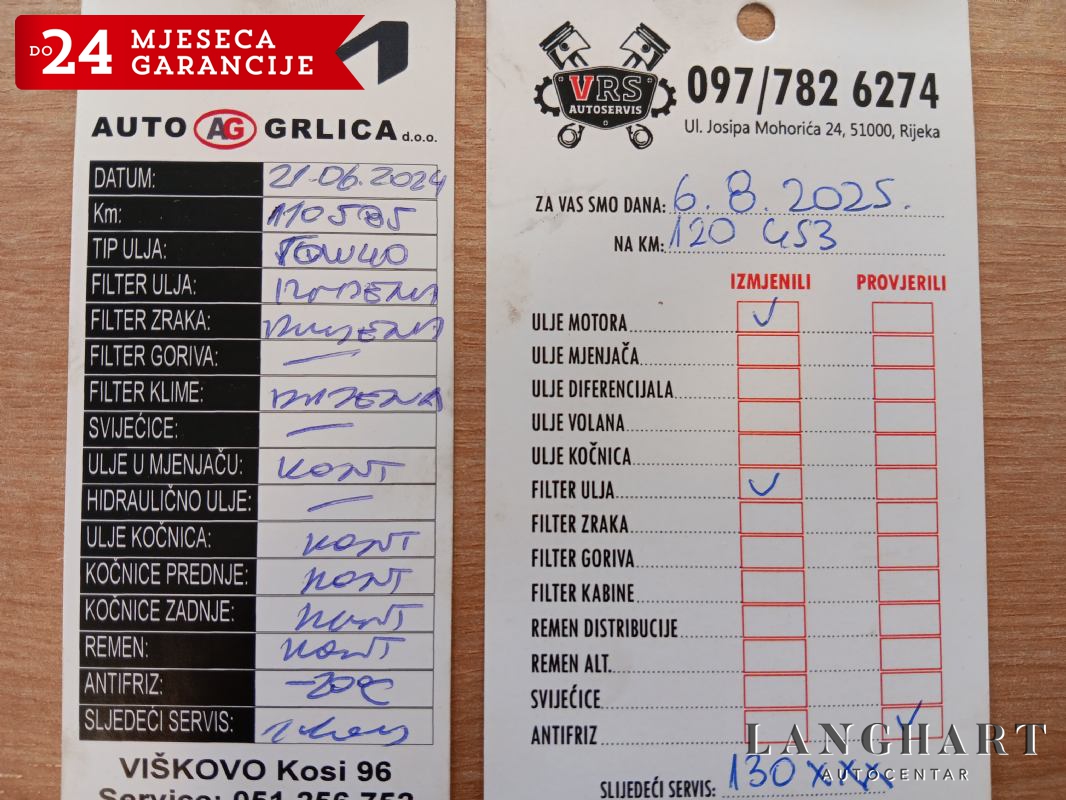 DO 24 MJESECA
GARANCIJE
AUTO AG GRLICA d.o.o.
DATUM: 21.06.2024
Km: 110585
TIP ULJA: 10W40
FILTER ULJA:
FILTER ZRAKA:
FILTER GORIVA: —
FILTER KLIME:
SVIJEĆICE: —
ULJE U MJENJAČU: KONT
HIDRAULIČNO ULJE: —
ULJE KOČNICA: KONT
KOČNICE PREDNJE: KONT
KOČNICE ZADNJE: KONT
REMEN: KONT
ANTIFRIZ: -20°C
SLJEDEĆI SERVIS:
VIŠKOVO Kosi 96
Service: 051 256 752
VRS
AUTOSERVIS
097/782 6274
Ul. Josipa Mohorića 24, 51000, Rijeka
ZA VAS SMO DANA: 6.8.2025.
NA KM: 120 453
IZMJENILI PROVJERILI
ULJE MOTORA ✓
ULJE MJENJAČA
ULJE DIFERENCIJALA
ULJE VOLANA
ULJE KOČNICA
FILTER ULJA ✓
FILTER ZRAKA
FILTER GORIVA
FILTER KABINE
REMEN DISTRIBUCIJE
REMEN ALT.
SVIJEĆICE
ANTIFRIZ ✓
SLIJEDEĆI SERVIS: 130 xxx
LANGHART
AUTOCENTAR